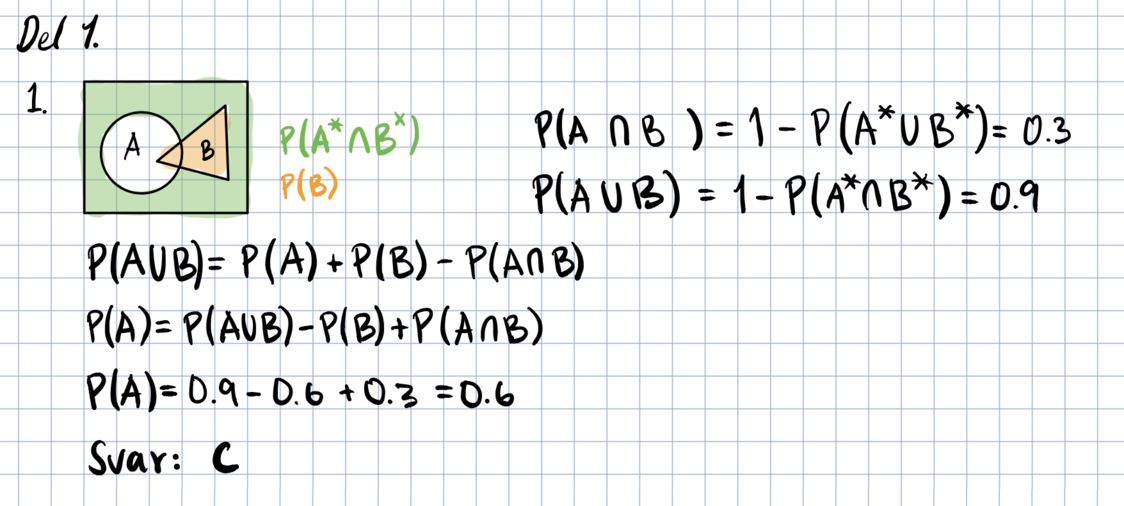 Del 1.
1.
A B
P(A*∩B*)
P(B)
P(A ∩ B) = 1 - P(A*∪B*) = 0.3
P(A∪B) = 1 - P(A*∩B*) = 0.9
P(A∪B) = P(A) + P(B) - P(A∩B)
P(A) = P(A∪B) - P(B) + P(A∩B)
P(A) = 0.9 - 0.6 + 0.3 = 0.6
Svar: C